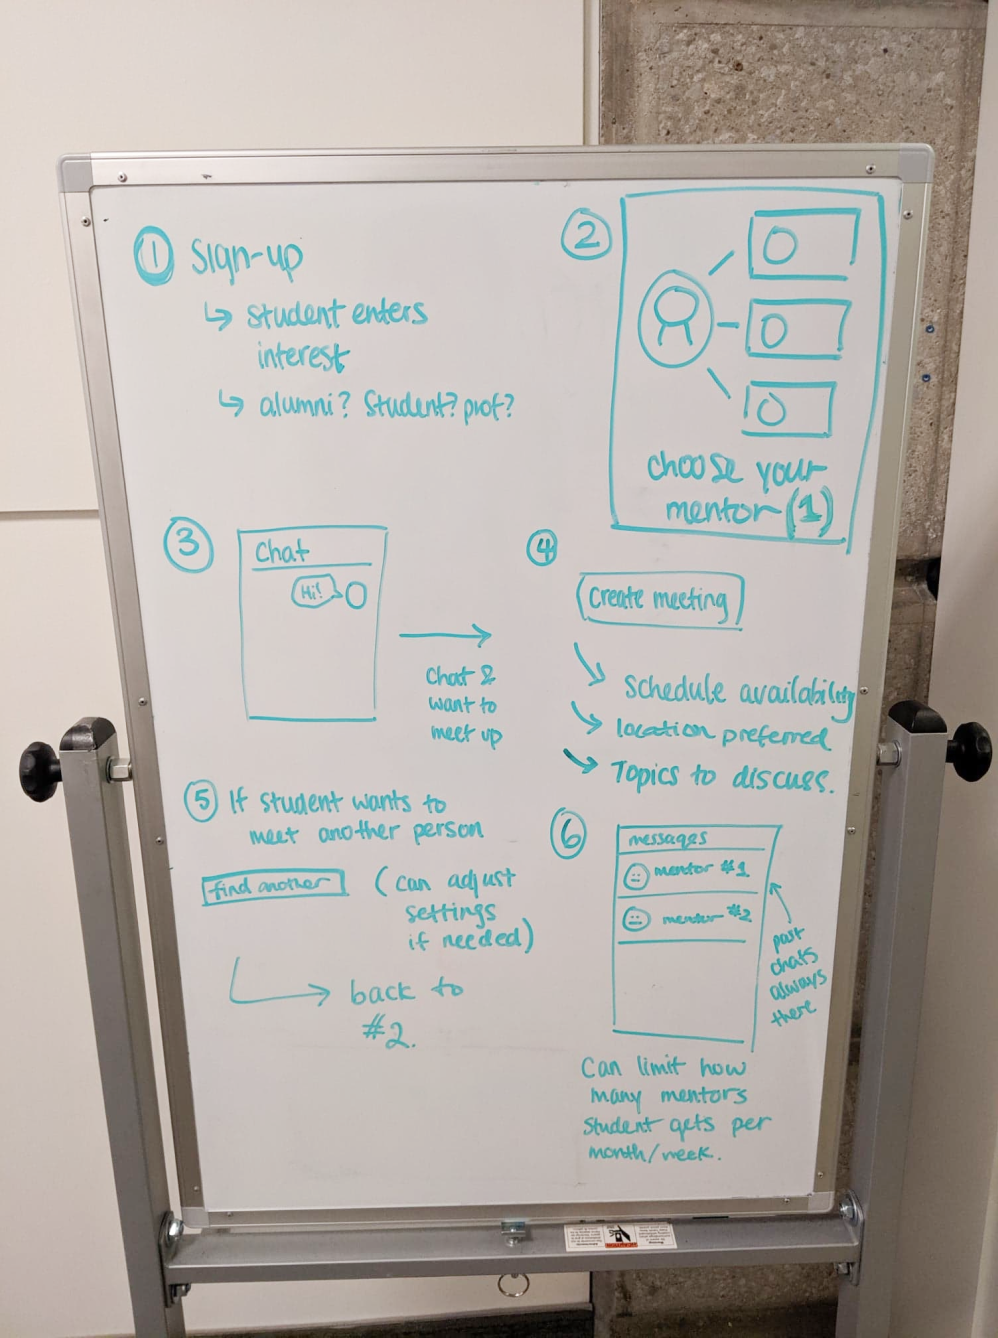 1 Sign-up
↳ student enters
interest
↳ alumni? Student? prof?
2
choose your
mentor (1)
3
Chat
Hi!
→
Chat &
want to
meet up
4
Create meeting
↘ Schedule availability
↘ location preferred
↘ Topics to discuss.
5 If student wants to
meet another person
find another (can adjust
settings
if needed)
→ back to
#2.
6
messages
mentor #1
mentor #2
past
chats
always
there
Can limit how
many mentors
Student gets per
month/week.